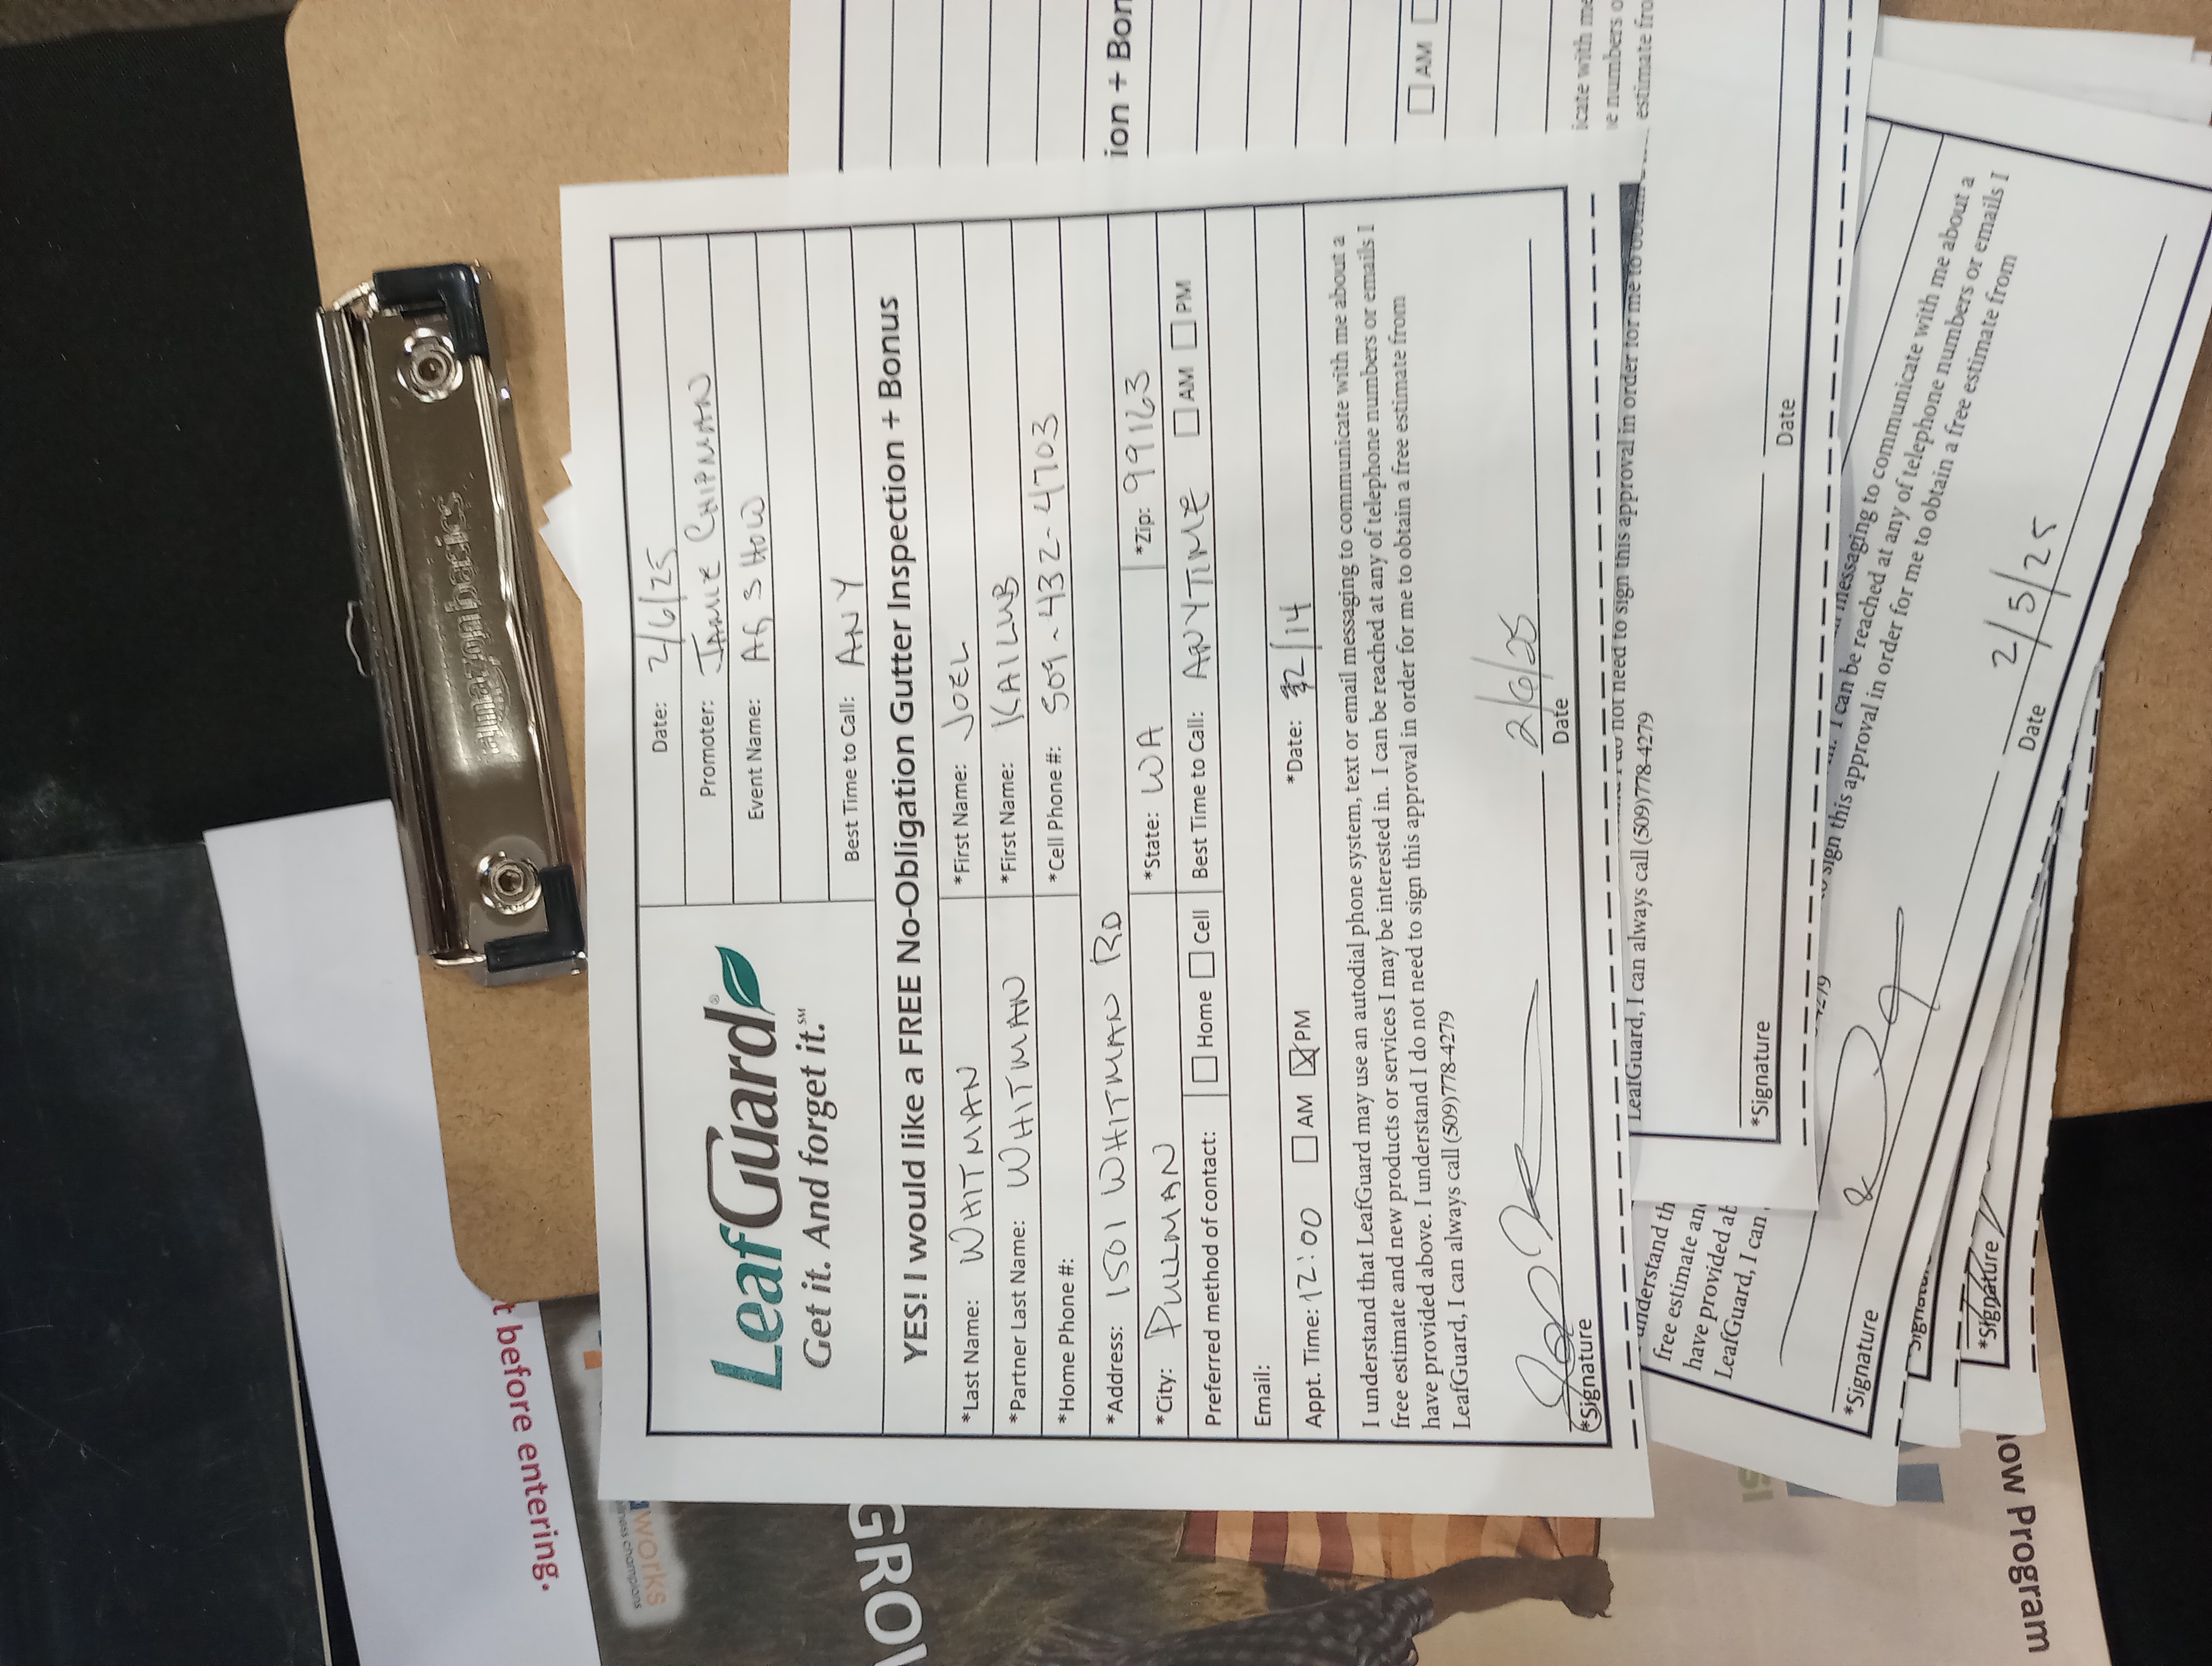 t before entering.
works
llness champions
GROW
amazonbasics
LeafGuard®
Get it. And forget it.℠
Date: 2/6/25
Promoter: JAMIE CHIPMAN
Event Name: AG SHOW
Best Time to Call: ANY
YES! I would like a FREE No-Obligation Gutter Inspection + Bonus
*Last Name: WHITMAN *First Name: JOEL
*Partner Last Name: WHITMAN *First Name: KAILUB
*Home Phone #: *Cell Phone #: 509-432-4703
*Address: 1501 WHITMAN RD
*City: PULLMAN *State: WA *Zip: 99163
Preferred method of contact: Home Cell Best Time to Call: ANYTIME AM PM
Email:
Appt. Time: 12:00 AM PM *Date: 2/14
I understand that LeafGuard may use an autodial phone system, text or email messaging to communicate with me about a
free estimate and new products or services I may be interested in. I can be reached at any of telephone numbers or emails I
have provided above. I understand I do not need to sign this approval in order for me to obtain a free estimate from
LeafGuard, I can always call (509)778-4279
2/6/25
*Signature Date
ion + Bon
AM
icate with me
e numbers o
estimate fro
I do not need to sign this approval in order for me to obtain
LeafGuard, I can always call (509)778-4279
*Signature Date
understand th
free estimate an
have provided ab
LeafGuard, I can
-4279
messaging to communicate with me about a
. I can be reached at any of telephone numbers or emails I
to sign this approval in order for me to obtain a free estimate from
*Signature
2/5/25
Date
Signatu
*Signature
ow Program